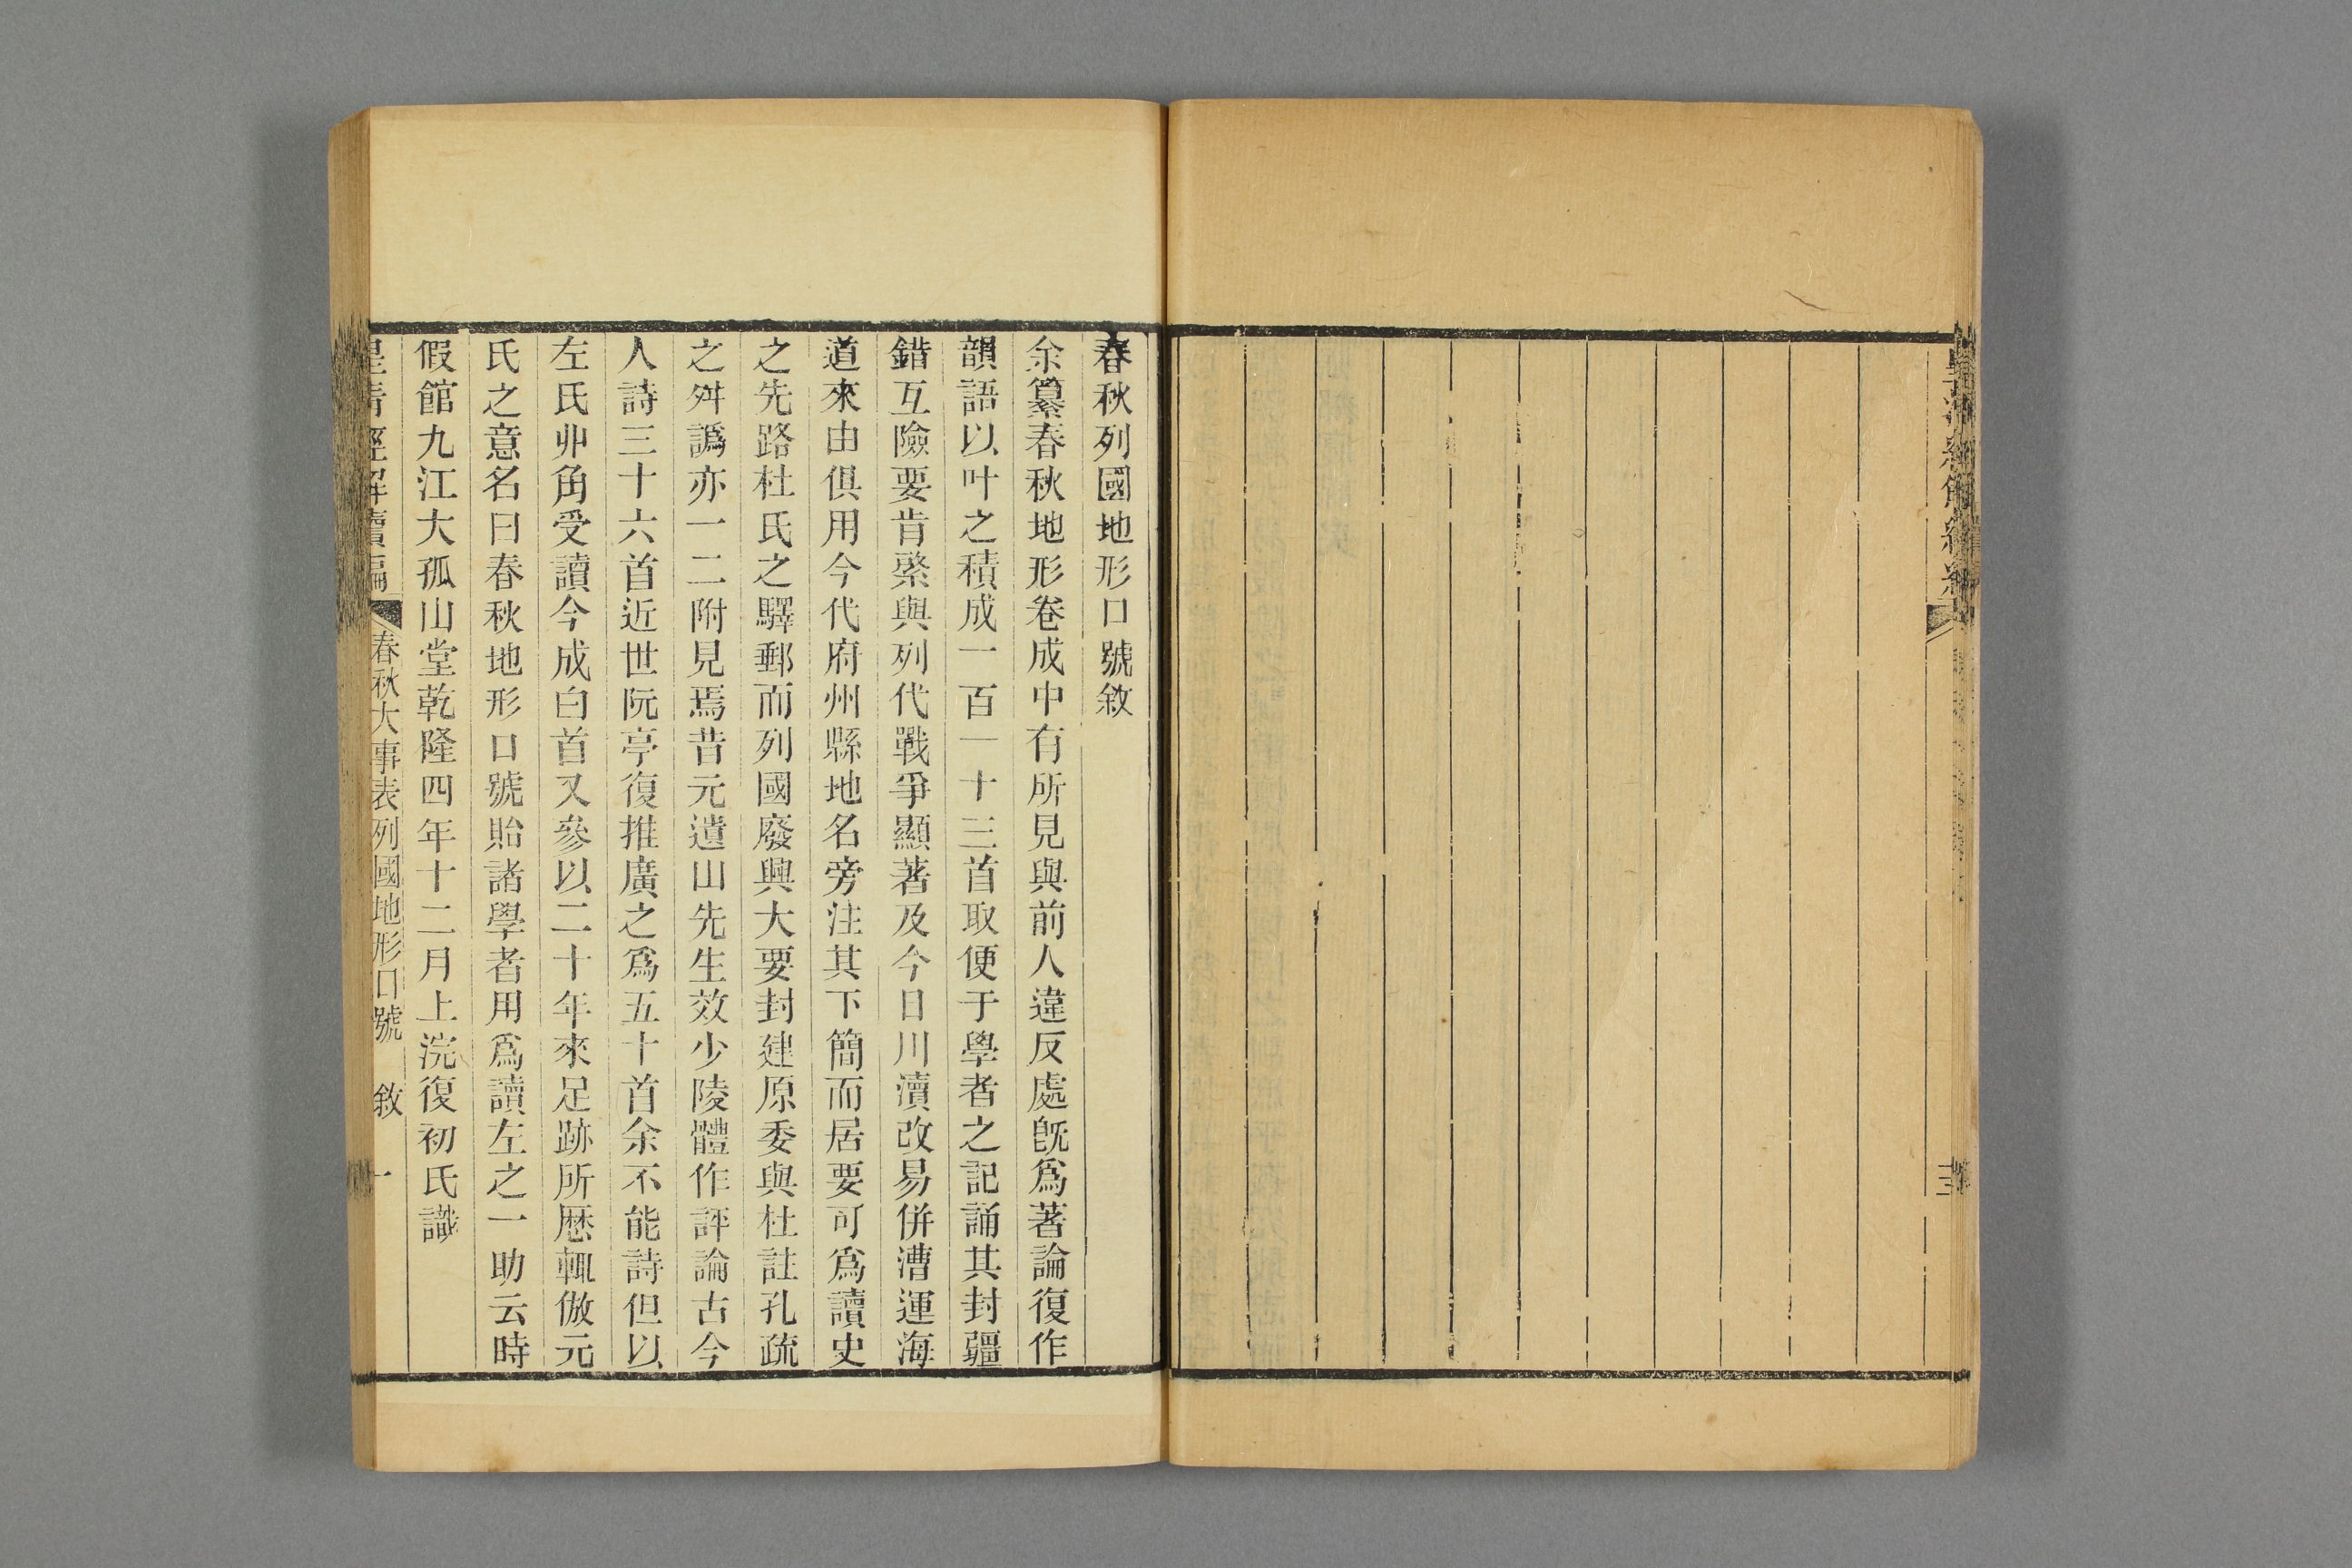 春秋列國地形口號敘
余纂春秋地形卷成中有所見與前人違反處旣爲著論復作
韻語以叶之積成一百一十三首取便于學者之記誦其封疆
錯互險要肯綮與列代戰爭顯著及今日川瀆改易併漕運海
道來由俱用今代府州縣地名旁注其下簡而居要可爲讀史
之先路杜氏之驛郵而列國廢興大要封建原委與杜註孔疏
之舛譌亦一二附見焉昔元遺山先生效少陵體作評論古今
人詩三十六首近世阮亭復推廣之爲五十首余不能詩但以
左氏丱角受讀今成白首又參以二十年來足跡所歷輒倣元
氏之意名曰春秋地形口號貽諸學者用爲讀左之一助云時
假館九江大孤山堂乾隆四年十二月上浣復初氏識
皇清經解續編
春秋大事表列國地形口號 敘 一